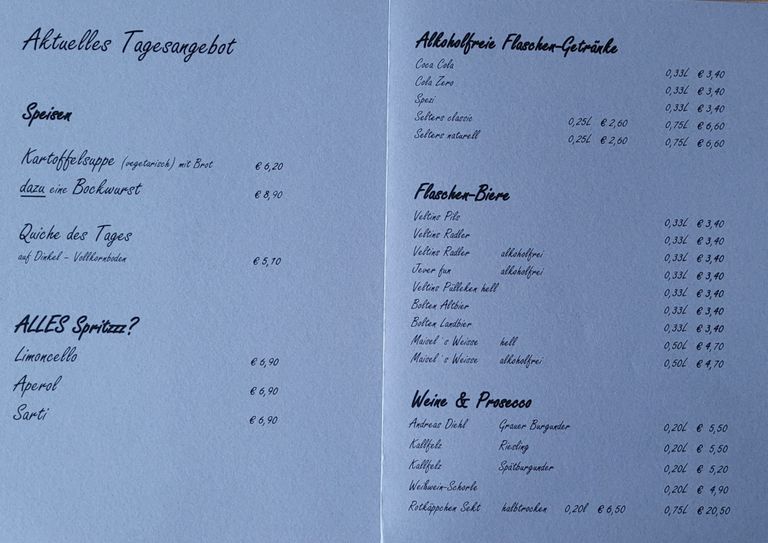 Aktuelles Tagesangebot
Speisen
Kartoffelsuppe (vegetarisch) mit Brot € 6,20
dazu eine Bockwurst € 8,90
Quiche des Tages
auf Dinkel - Vollkornboden € 5,10
ALLES Spritzzz?
Limoncello € 6,90
Aperol € 6,90
Sarti € 6,90
Alkoholfreie Flaschen-Getränke
Coca Cola 0,33L € 3,40
Cola Zero 0,33L € 3,40
Spezi 0,33L € 3,40
Selters classic 0,25L € 2,60 0,75L € 6,60
Selters naturell 0,25L € 2,60 0,75L € 6,60
Flaschen-Biere
Veltins Pils 0,33L € 3,40
Veltins Radler 0,33L € 3,40
Veltins Radler alkoholfrei 0,33L € 3,40
Jever fun alkoholfrei 0,33L € 3,40
Veltins Pülleken hell 0,33L € 3,40
Bolten Altbier 0,33L € 3,40
Bolten Landbier 0,33L € 3,40
Maisel´s Weisse hell 0,50L € 4,70
Maisel´s Weisse alkoholfrei 0,50L € 4,70
Weine & Prosecco
Andreas Diehl Grauer Burgunder 0,20L € 5,50
Kallfelz Riesling 0,20L € 5,50
Kallfelz Spätburgunder 0,20L € 5,20
Weißwein-Schorle 0,20L € 4,90
Rotkäppchen Sekt halbtrocken 0,20l € 6,50 0,75L € 20,50